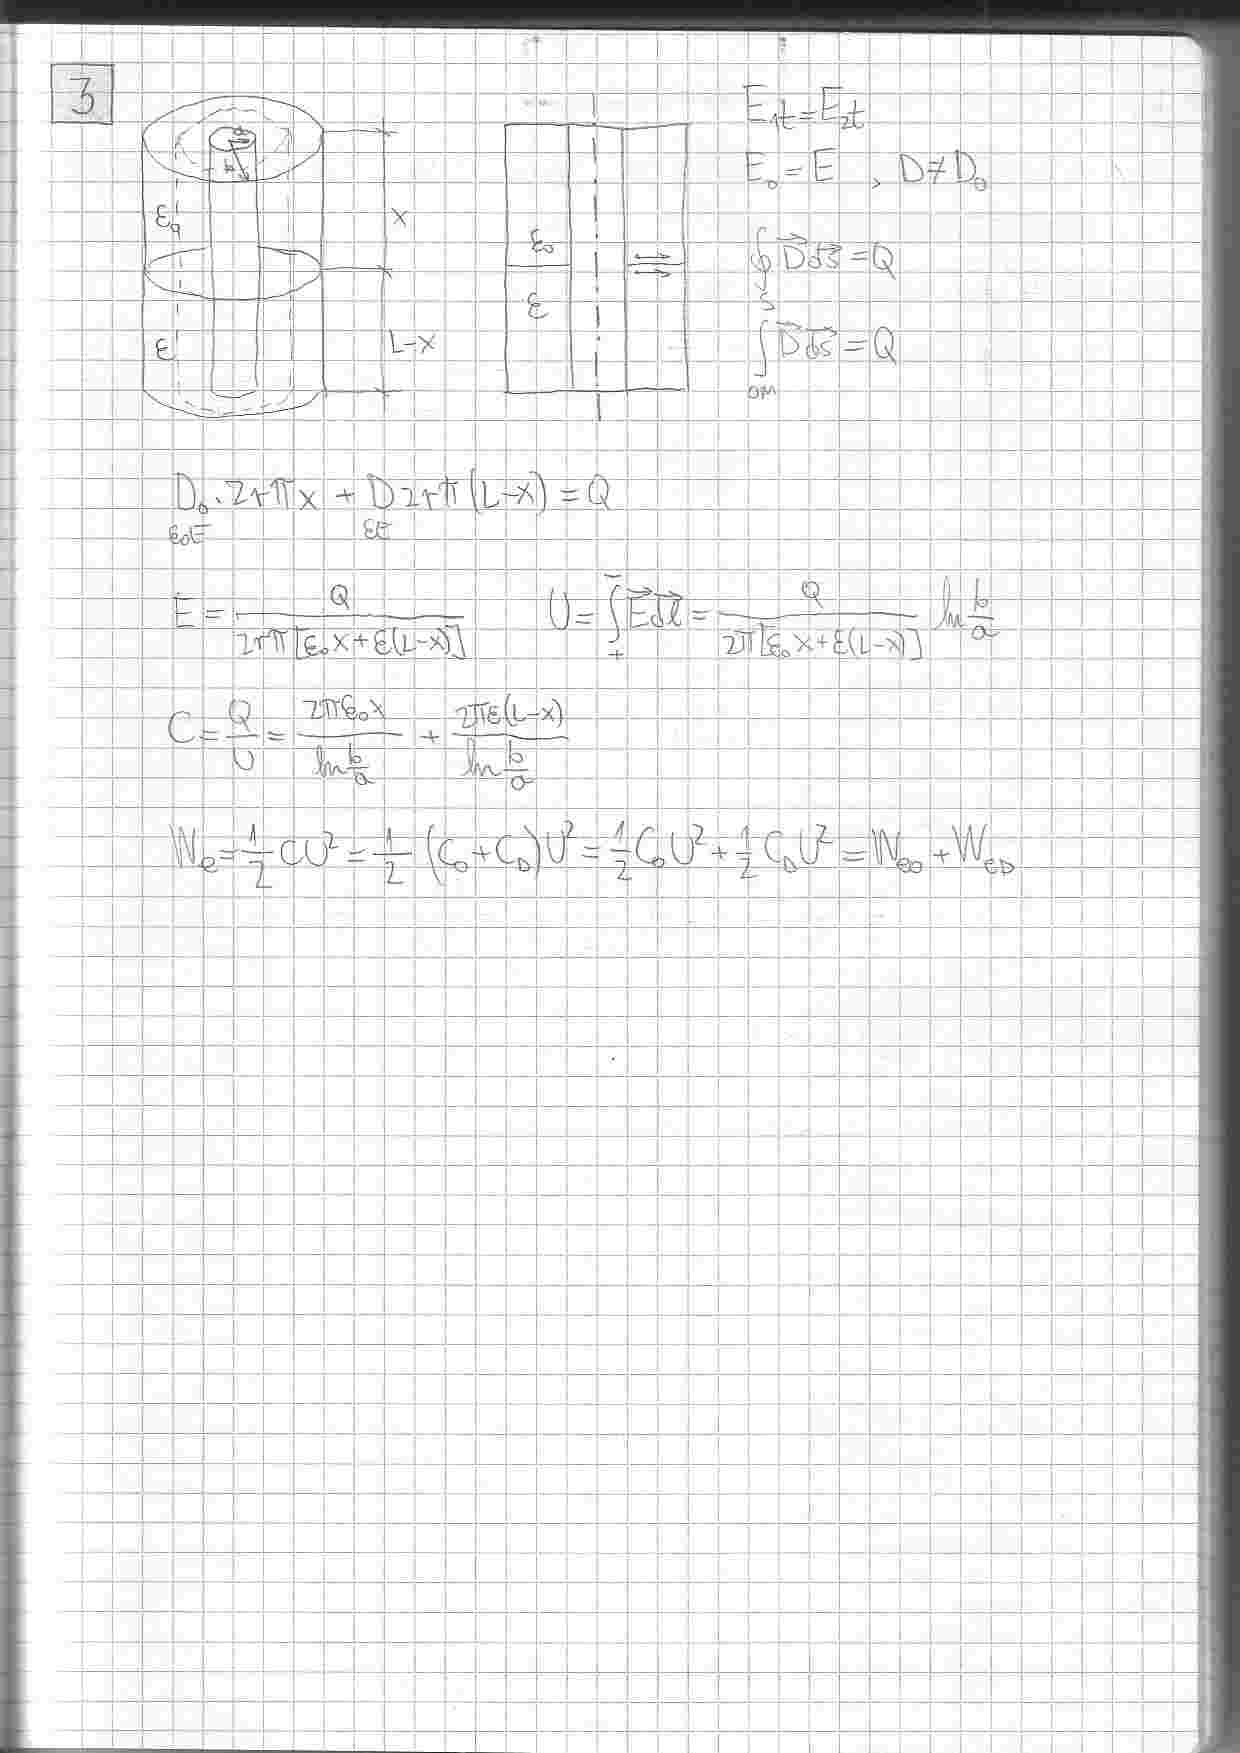 3
a
b
ε₀
x
ε
L-x
ε₀
ε
E₁t = E₂t
E₀ = E , D ≠ D₀
∮ D⃗ dS⃗ = Q
S
∫ D⃗ dS⃗ = Q
OM
D₀ · 2rπx + D2rπ(L-x) = Q
ε₀E εE
E = Q / 2rπ[ε₀x + ε(L-x)] U = ∫₊⁻ E⃗ dl⃗ = Q / 2π[ε₀x + ε(L-x)] ln b/a
C = Q/U = 2πε₀x / ln b/a + 2πε(L-x) / ln b/a
We = 1/2 CU² = 1/2 (C₀ + C_D)U² = 1/2 C₀U² + 1/2 C_DU² = We₀ + We_D